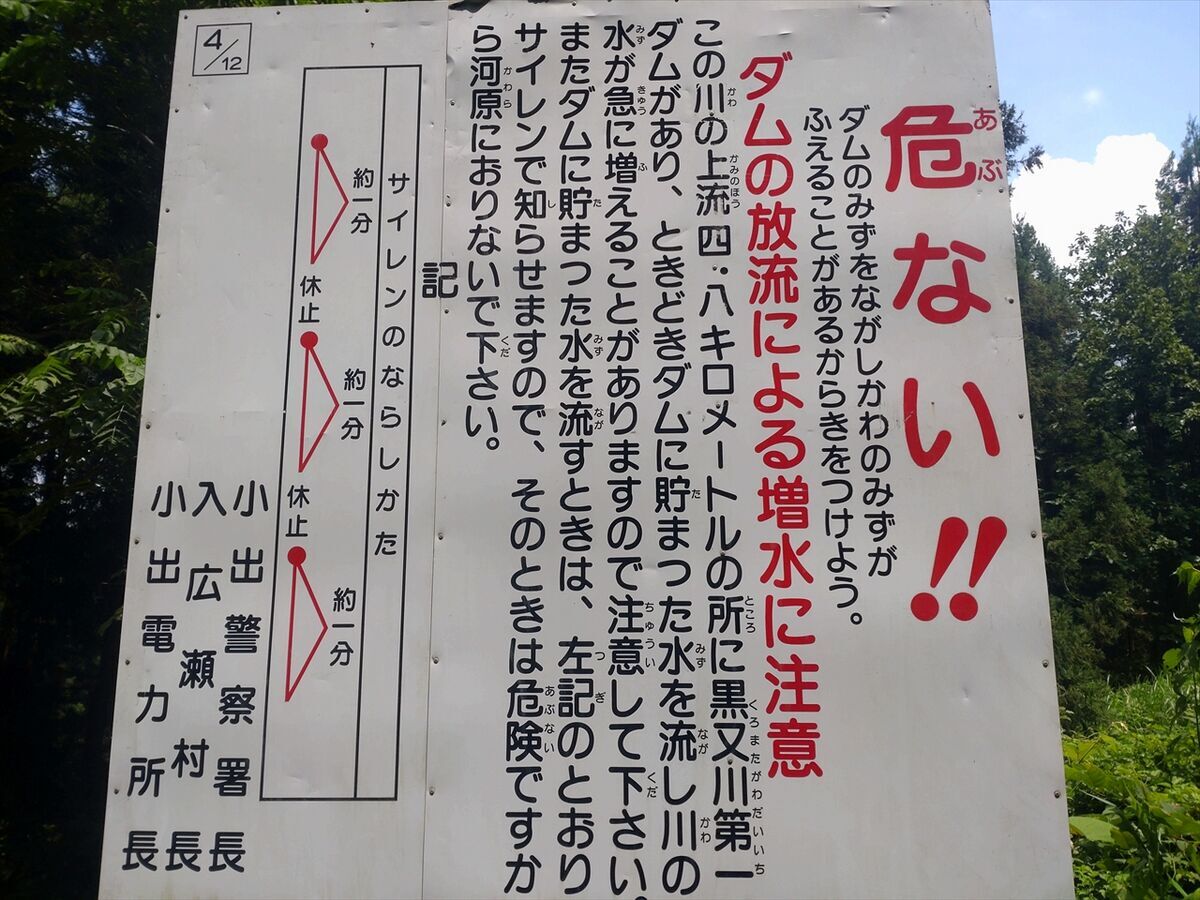 危ない!!
ダムのみずをながしかわのみずが
ふえることがあるからきをつけよう。
ダムの放流による増水に注意
この川の上流四・八キロメートルの所に黒又川第一
ダムがあり、ときどきダムに貯まった水を流し川の
水が急に増えることがありますので注意して下さい。
またダムに貯まつた水を流すときは、左記のとおり
サイレンで知らせますので、そのときは危険ですか
ら河原におりないで下さい。
記
サイレンのならしかた
約一分
休止
約一分
休止
約一分
小出警察署長
入広瀬村長
小出電力所長
4/12